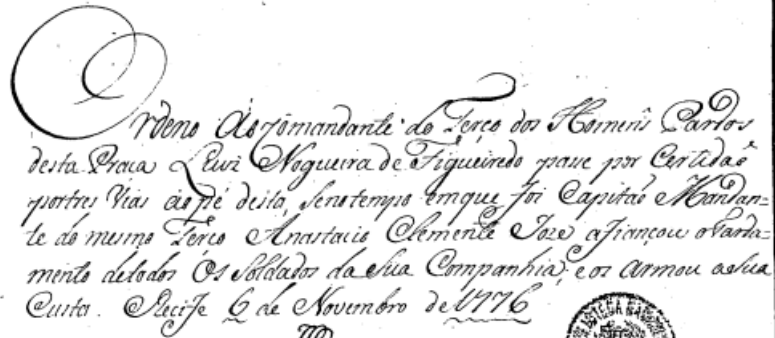 Ordeno ao Comandante do Terço dos Homens Pardos
desta Praça Luiz Nogueira de Figueiredo passe por Certidaõ
por tres Vias ao pé desta, se no tempo em que foi Capitaõ Mandan=
te do mesmo Terço Anastacio Clemente Joze afiançou o farda=
mento de todos Os Soldados da Sua Companhia, e os armou a sua
Custa. Recife 6 de Novembro de 1776